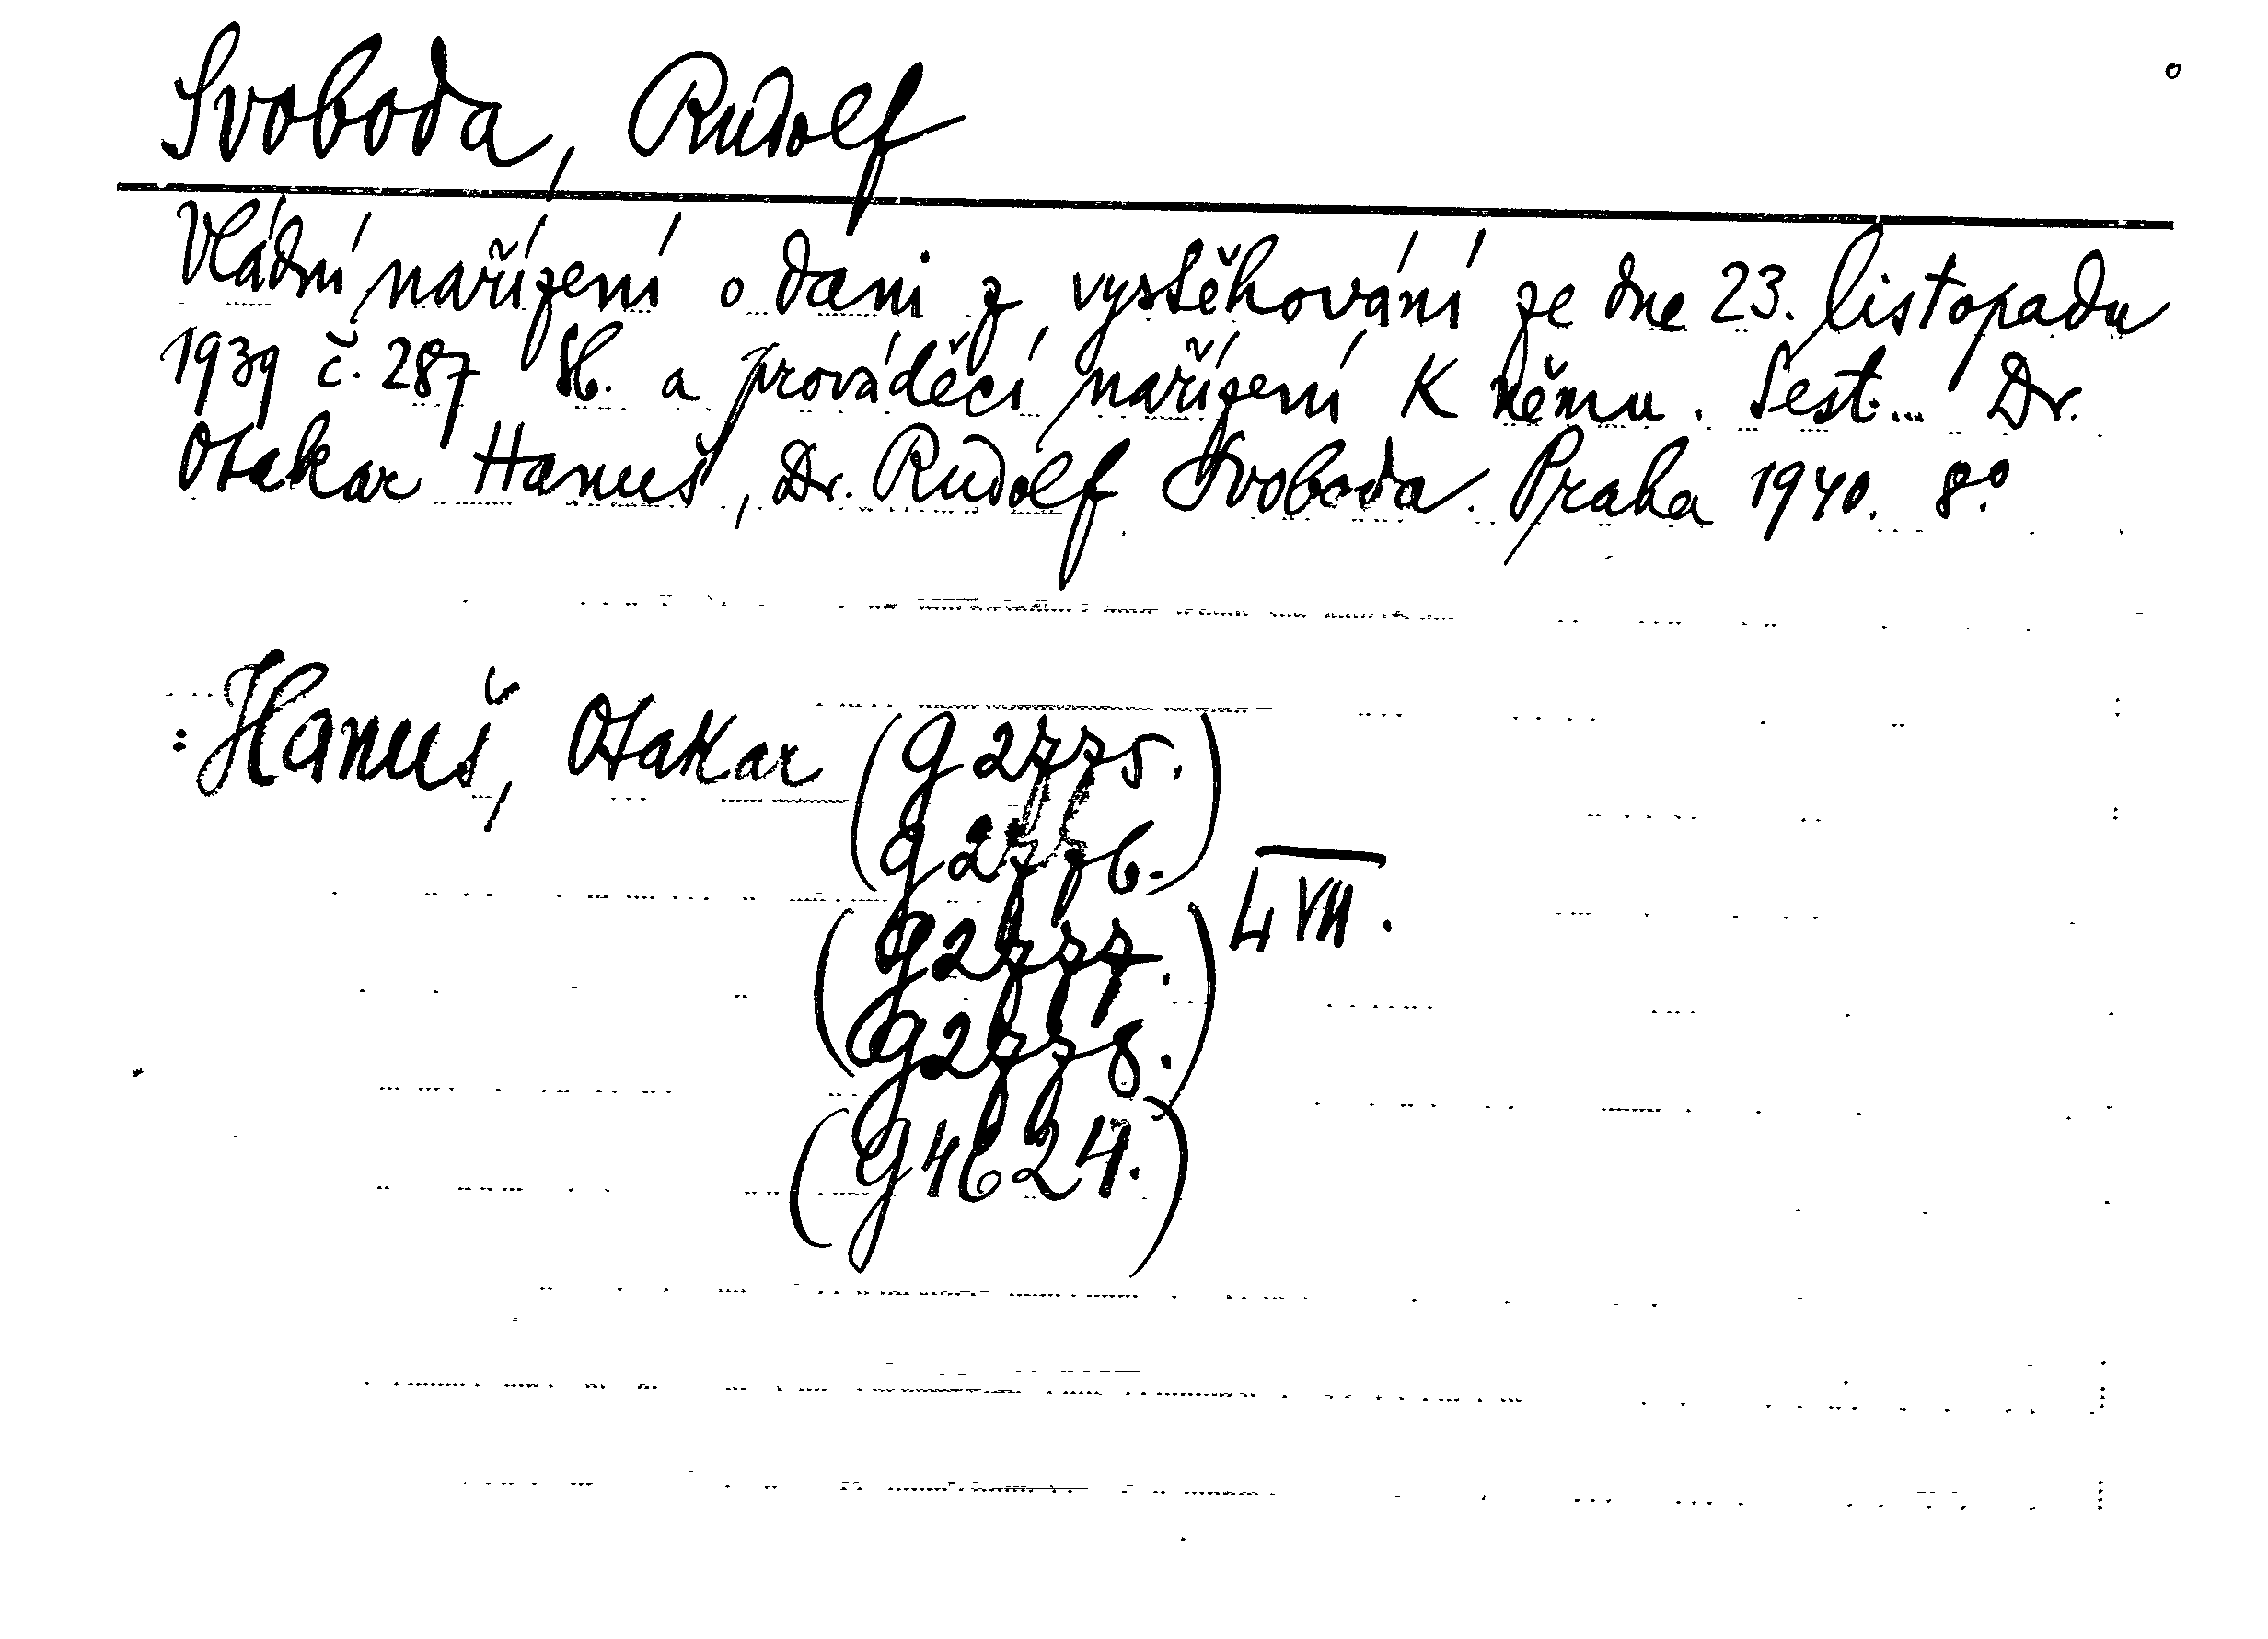 Svoboda, Rudolf
Vládní nařízení o dani z vystěhování ze dne 23. listopadu
1939 č. 287 Sb. a prováděcí nařízení k němu. Sest.... Dr.
Otakar Hanuš, Dr. Rudolf Svoboda. Praha 1940. 8.°
: Hanuš, Otakar (g 2775.
g 2776.)
(g 2777. LVII.
g 2778.)
(g 4624.)